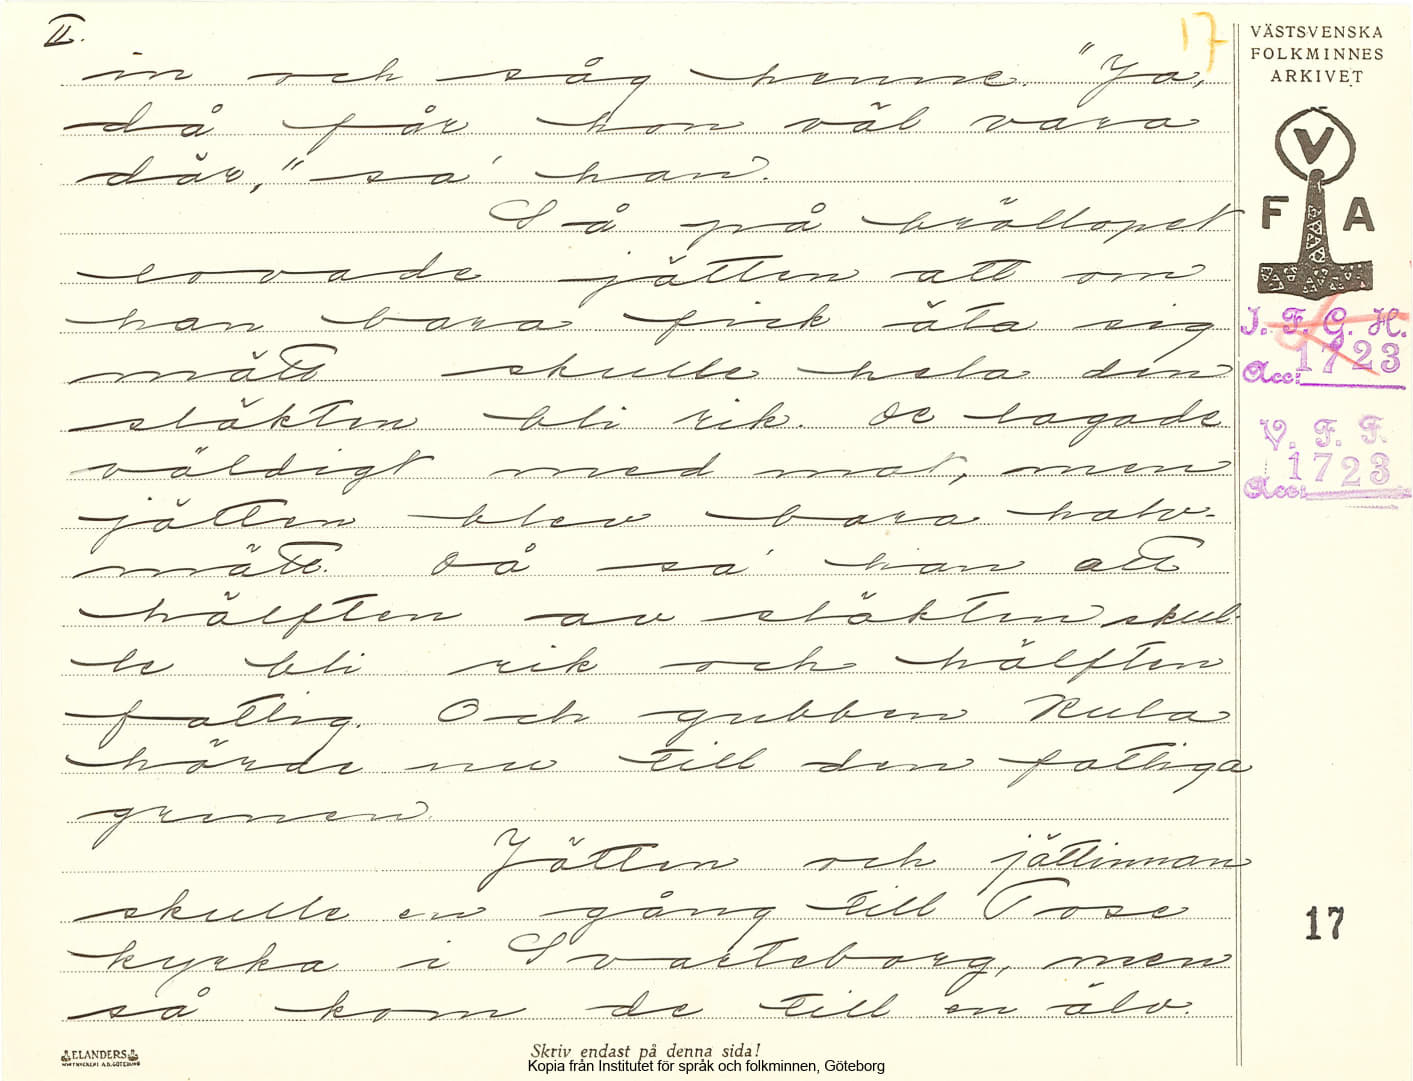 II.
17
in och såg henne. "Ja,
då får hon väl vara
där," sa' han.
Så på bröllopet
lovade jätten att om
han bara fick äta sig
mätt skulle hela den
släkten bli rik. De lagade
väldigt med mat, men
jätten blev bara halv-
mätt. Då sa' han att
hälften av släkten skul-
le bli rik och hälften
fattig. Och gubben Kula
hörde nu till den fattiga
grenen.
Jätten och jättinnan
skulle en gång till Tose
kyrka i Svarteborg, men
så kom de till en älv.
VÄSTSVENSKA
FOLKMINNES
ARKIVET
V
F A
I. F. G. H.
Acc: 1723
V. F. F.
Acc: 1723
17
ELANDERS
Skriv endast på denna sida!
Kopia från Institutet för språk och folkminnen, Göteborg